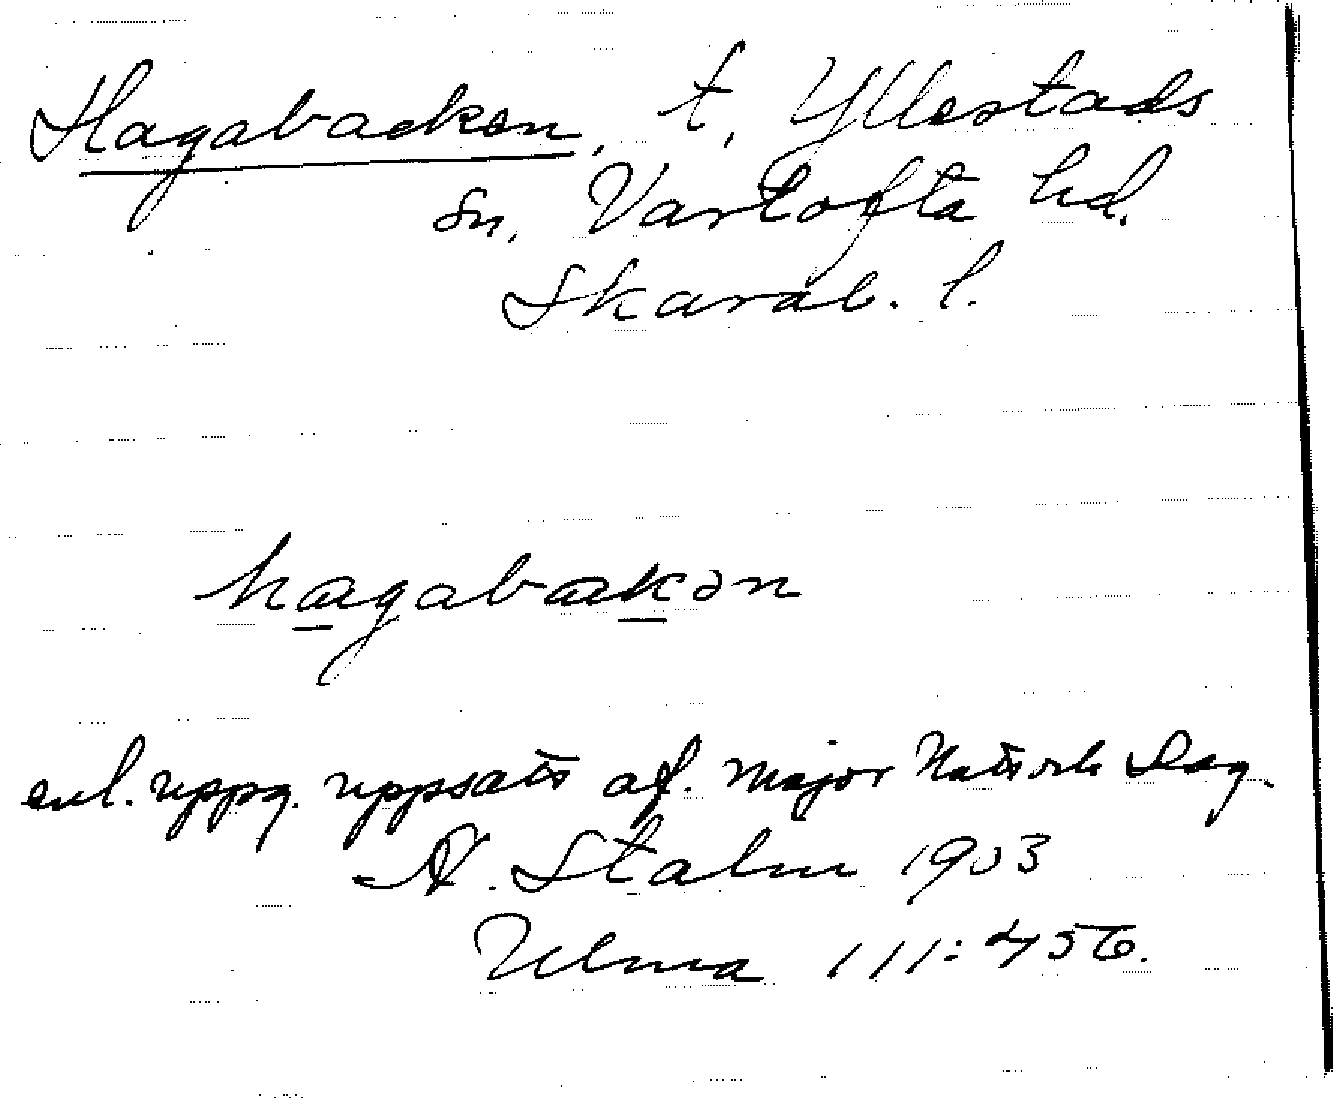 Hagabacken, t, Yllestads
sn, Vartofta hd.
Skarab. l.
hagabakən
enl. uppg. uppsats af. major Natt och Dag
A. Stalin 1903
Ulma 111:456.